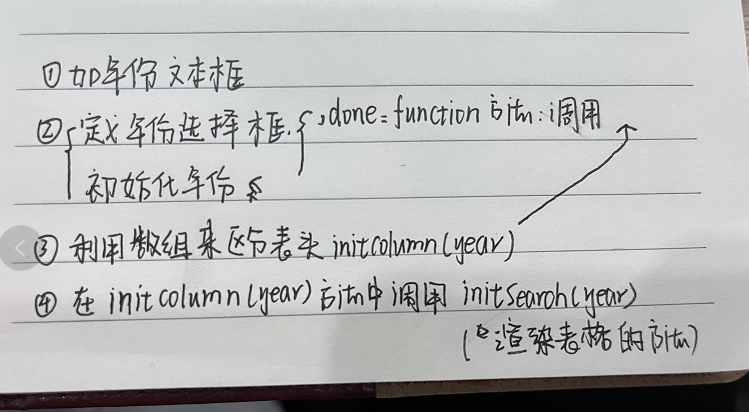 ①加年份文本框
②{定义年份选择框. {,done=function方法:调用
初始化年份
③利用数组来区分表头initcolumn(year)
④在initcolumn(year)方法中调用initSearch(year)
(渲染表格的方法)